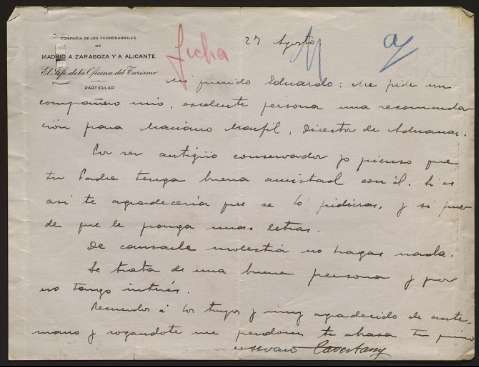 COMPAÑIA DE LOS FERROCARRILES
DE
MADRID A ZARAGOZA Y A ALICANTE
El Jefe de la Oficina del Turismo
PARTICULAR
ficha
27 Agosto
Mi querido Eduardo: Me pide un
compañero mio, excelente persona una recomenda
ción para Mariano Marfil, Director de Aduanas.
Por ser antigüo conservador yo pienso que
tu Padre tenga buena amistad con él. Si es
asi te agradeceria que se lo pidieras, y si puede
de que le ponga unas letras.
De causarle molestia no hagas nada.
Se trata de una buena persona y por
eso tengo interés.
Recuerdos á los tuyos y muy agradecido de ante
mano y rogandote me perdones te abraza tu primo
Cavestany